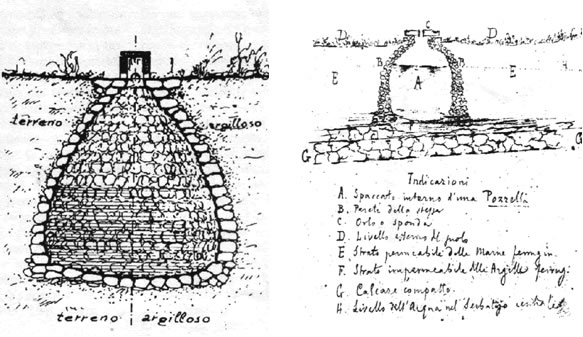 terreno
argilloso
terreno argilloso
C
D
D
B
B
E
E
H
A
G
G
Indicazioni
A. Spaccato interno d'una Pozzella
B. Pareti della stessa
C. Orlo o sponda
D. Livello esterno del suolo
E Strato permeabile delle Marne
F. Strato impermeabile delle Argille
G. Calcare compatto.
H. Livello dell'Acqua nel Serbatojo